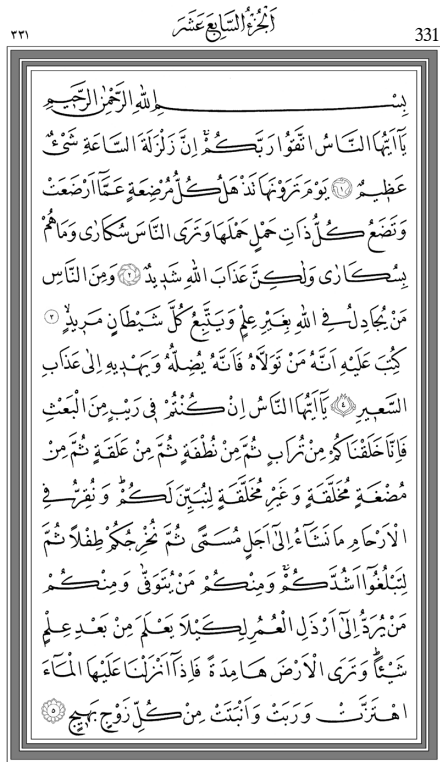 ٣٣١ اَلْجُزْءُ السَّابِعَ عَشَرَ 331
بِسْمِ اللهِ الرَّحْمٰنِ الرَّحِيمِ
يَآ اَيُّهَا النَّاسُ اتَّقُوا رَبَّكُمْۚ اِنَّ زَلْزَلَةَ السَّاعَةِ شَيْءٌ
عَظِيمٌ ﴿١﴾ يَوْمَ تَرَوْنَهَا تَذْهَلُ كُلُّ مُرْضِعَةٍ عَمَّٓا اَرْضَعَتْ
وَتَضَعُ كُلُّ ذَاتِ حَمْلٍ حَمْلَهَا وَتَرَى النَّاسَ سُكَارٰى وَمَا هُمْ
بِسُكَارٰى وَلٰكِنَّ عَذَابَ اللهِ شَدِيدٌ ﴿٢﴾ وَمِنَ النَّاسِ
مَنْ يُجَادِلُ فِي اللهِ بِغَيْرِ عِلْمٍ وَيَتَّبِعُ كُلَّ شَيْطَانٍ مَرِيدٍۙ ﴿٣﴾
كُتِبَ عَلَيْهِ اَنَّهُ مَنْ تَوَلَّاهُ فَاَنَّهُ يُضِلُّهُ وَيَهْدِيهِ اِلٰى عَذَابِ
السَّعِيرِ ﴿٤﴾ يَآ اَيُّهَا النَّاسُ اِنْ كُنْتُمْ فِي رَيْبٍ مِنَ الْبَعْثِ
فَاِنَّا خَلَقْنَاكُمْ مِنْ تُرَابٍ ثُمَّ مِنْ نُطْفَةٍ ثُمَّ مِنْ عَلَقَةٍ ثُمَّ مِنْ
مُضْغَةٍ مُخَلَّقَةٍ وَغَيْرِ مُخَلَّقَةٍ لِنُبَيِّنَ لَكُمْۜ وَنُقِرُّ فِي
الْاَرْحَامِ مَا نَشَٓاءُ اِلٰٓى اَجَلٍ مُسَمًّى ثُمَّ نُخْرِجُكُمْ طِفْلًا ثُمَّ
لِتَبْلُغُٓوا اَشُدَّكُمْۚ وَمِنْكُمْ مَنْ يُتَوَفّٰى وَمِنْكُمْ
مَنْ يُرَدُّ اِلٰٓى اَرْذَلِ الْعُمُرِ لِكَيْلَا يَعْلَمَ مِنْ بَعْدِ عِلْمٍ
شَيْـًٔاۜ وَتَرَى الْاَرْضَ هَامِدَةً فَاِذَٓا اَنْزَلْنَا عَلَيْهَا الْمَٓاءَ
اهْتَزَّتْ وَرَبَتْ وَاَنْبَتَتْ مِنْ كُلِّ زَوْجٍ بَهِيجٍ ﴿٥﴾